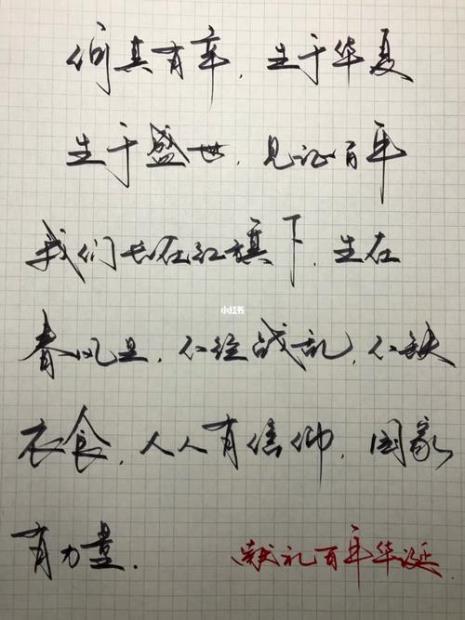 何其有幸，生于华夏
生于盛世，见证百年
我们长在红旗下，生在
春风里，不经战乱，不缺
衣食，人人有信仰，国家
有力量.
献礼百年华诞
小红书